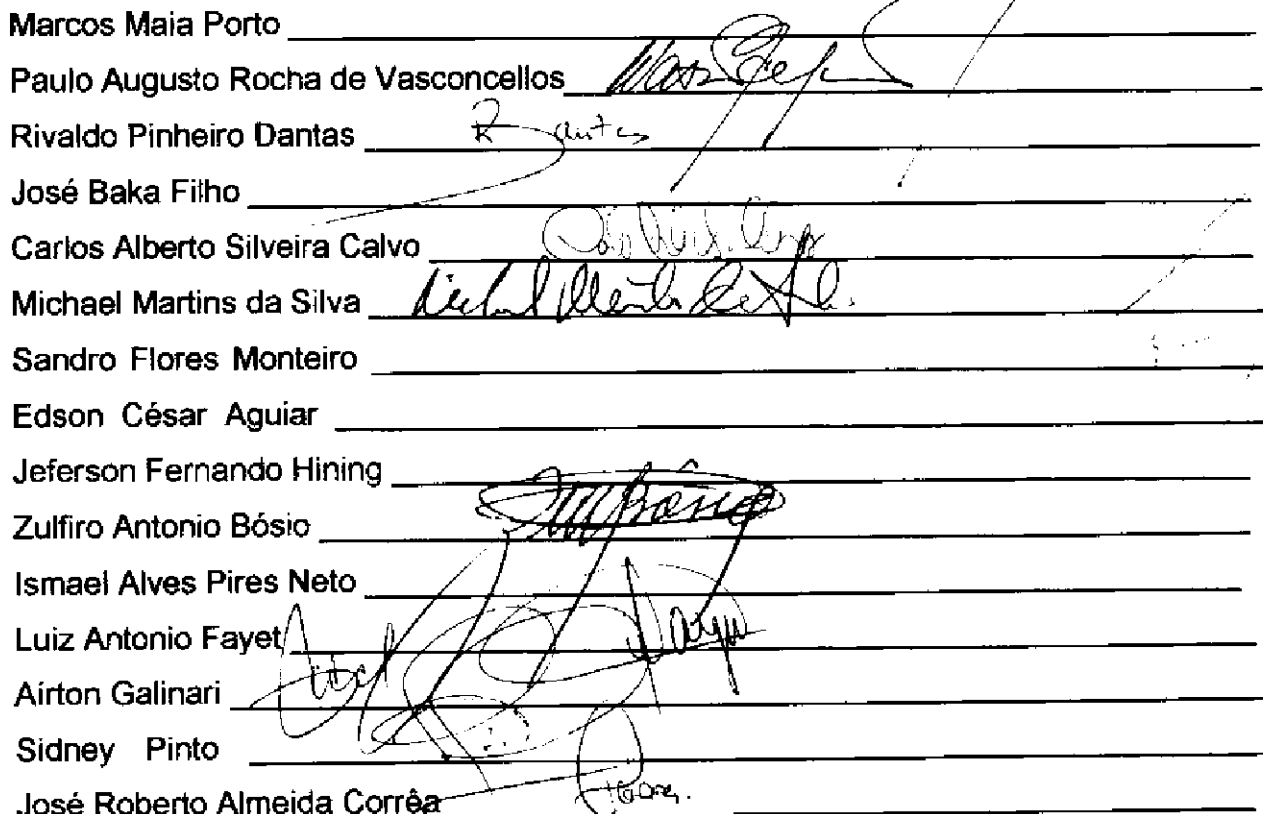 Marcos Maia Porto
Paulo Augusto Rocha de Vasconcellos
Rivaldo Pinheiro Dantas
José Baka Filho
Carlos Alberto Silveira Calvo
Michael Martins da Silva
Sandro Flores Monteiro
Edson César Aguiar
Jeferson Fernando Hining
Zulfiro Antonio Bósio
Ismael Alves Pires Neto
Luiz Antonio Fayet
Airton Galinari
Sidney Pinto
José Roberto Almeida Corrêa